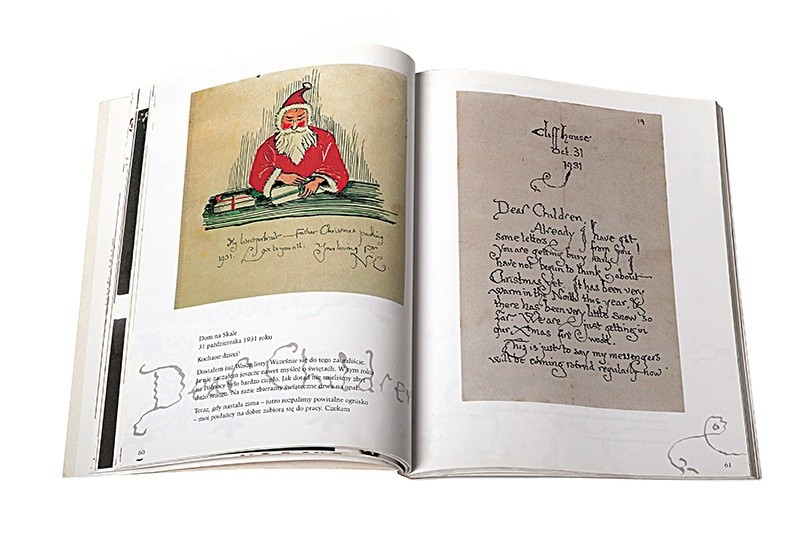 My latest portrait — Father Christmas packing
1931. Love to you all. Your loving F.
N C
Dom na Skale
31 października 1931 roku
Kochane dzieci!
Dostałem już Wasze listy! Wcześnie się do tego zabraliście.
Ja nie zacząłem jeszcze nawet myśleć o świętach. W tym roku
na Północy bardzo ciepło. Jak dotąd nie mieliśmy zbyt
dużo śniegu. Na razie zbieramy świąteczne drwa na opał.
Teraz, gdy nastała zima – jutro rozpalimy powitalne ognisko
– moi posłańcy na dobre zabiorą się do pracy. Czekam
Dear Children
60
19
Cliff house
Oct. 31
1931
Dear Children,
Already I have got
some letters from you!
You are getting busy early. I
have not begun to think about
Christmas yet. It has been very
warm in the North this year, &
there has been very little snow so
far. We are just getting in
our Xmas fire wood.
This is just to say my messengers
will be coming round regularly now
61